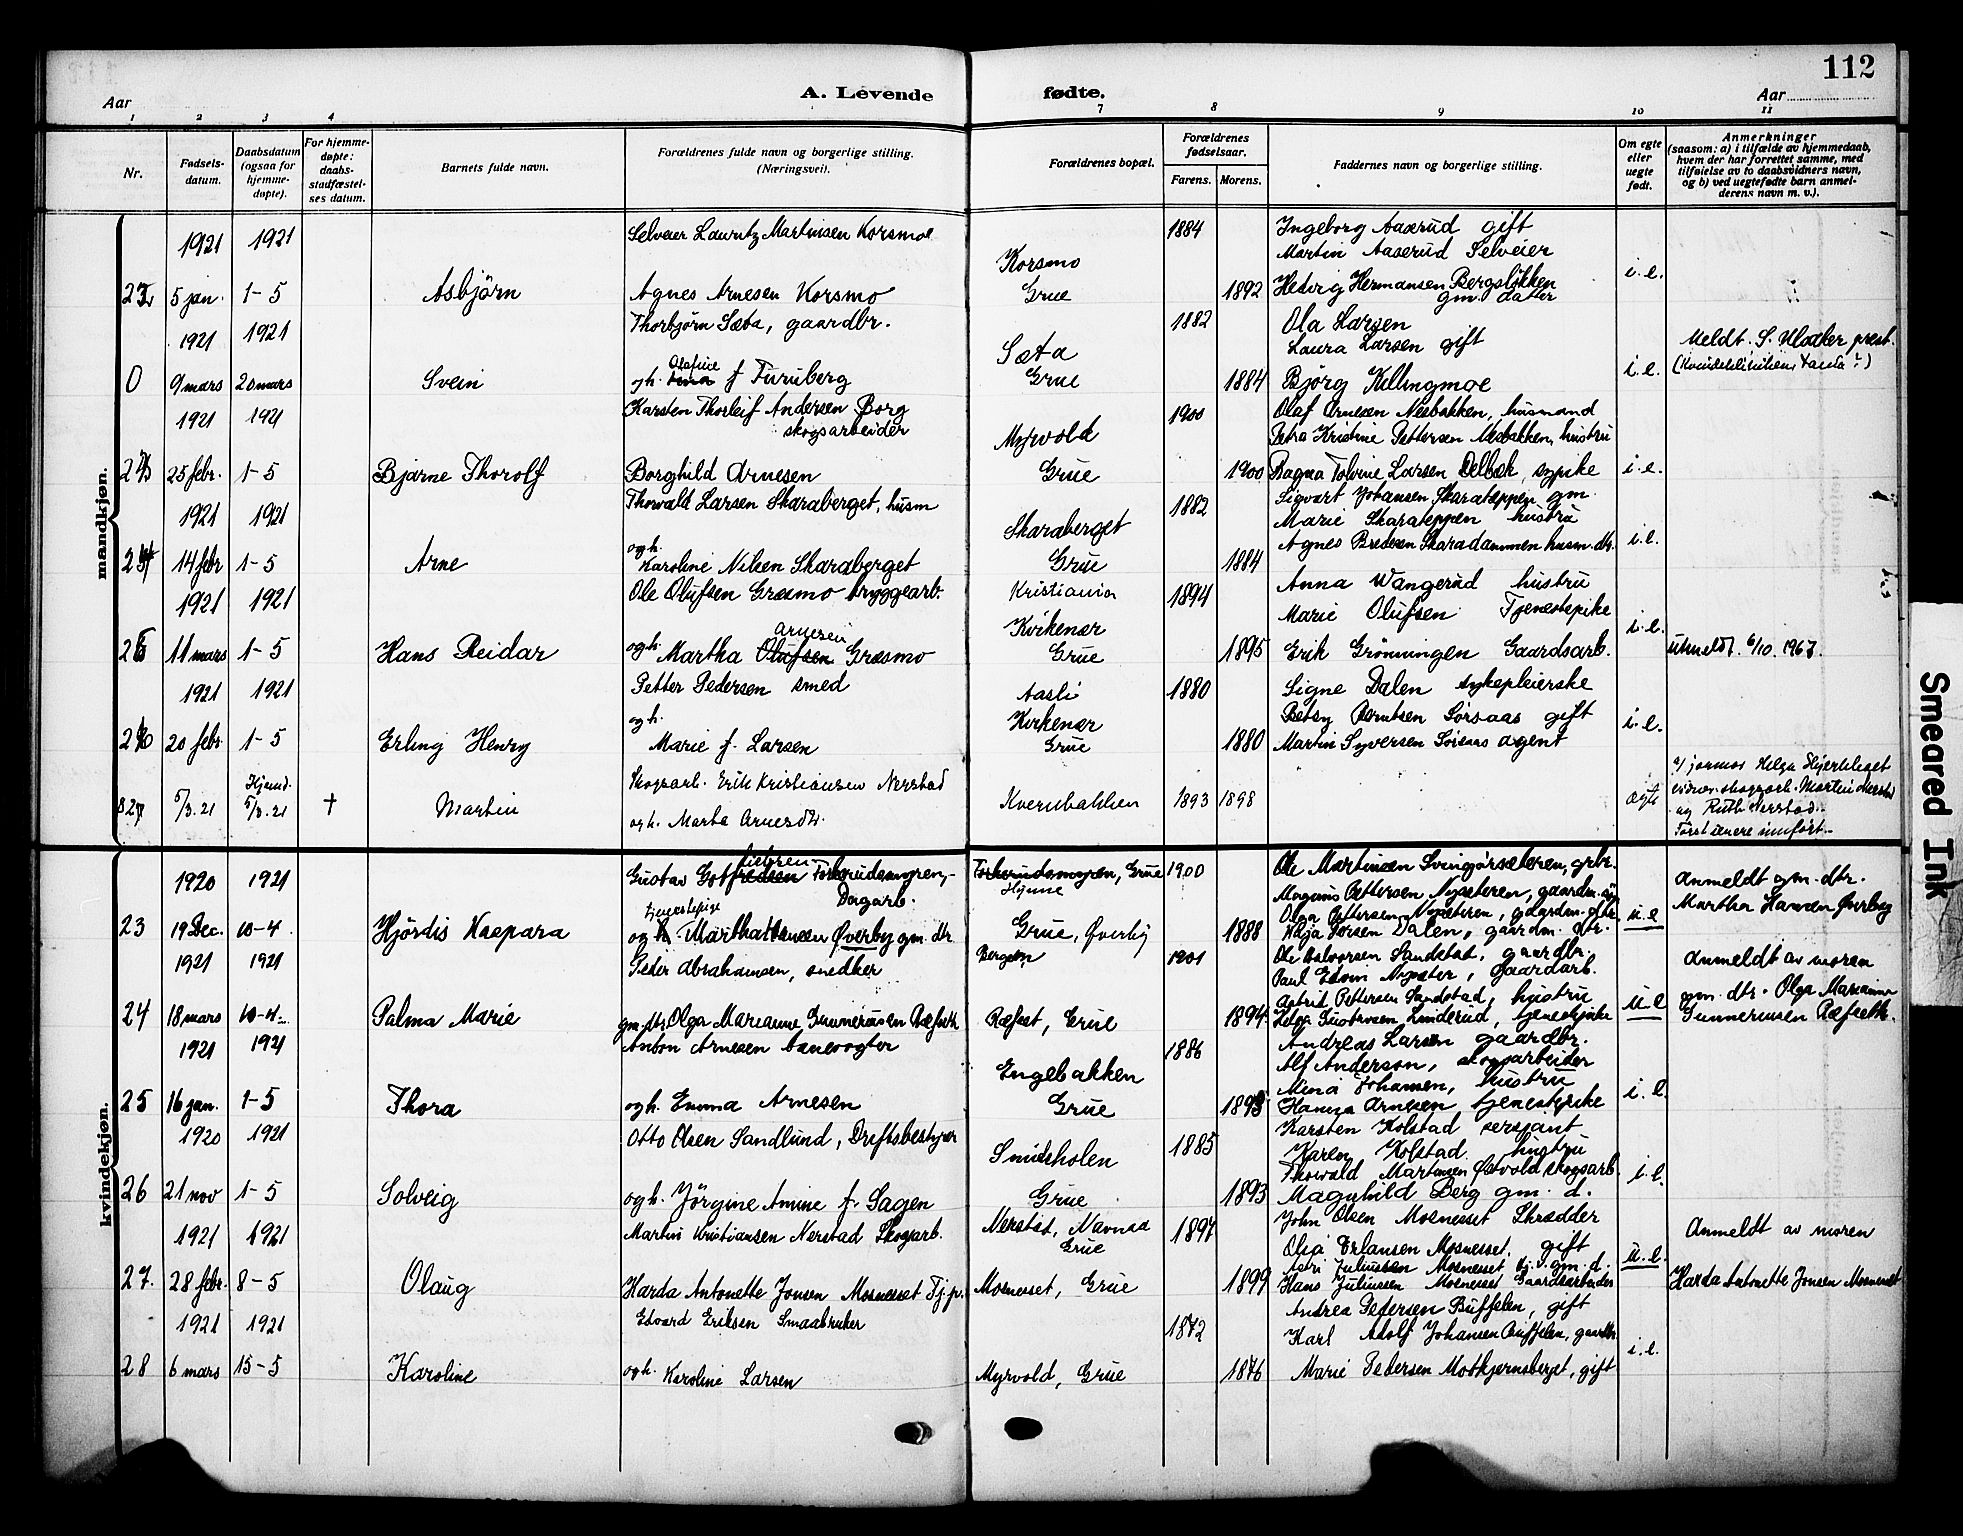 112
A. Levende fødte.
Aar
Aar
1 2 3 4 7 8 9 10 11
Nr.
Fødsels-
datum.
Daabsdatum
(ogsaa for
hjemme-
døpte).
For hjemme-
døpte:
daabs-
stadfæstel-
ses datum.
Barnets fulde navn.
Forældrenes fulde navn og borgerlige stilling.
(Næringsvei).
Forældrenes bopæl.
Forældrenes
fødselsaar.
Farens. Morens.
Faddernes navn og borgerlige stilling.
Om egte
eller
uegte
født.
Anmerkninger
(saasom: a) i tilfælde av hjemmedaab,
hvem der har forrettet samme, med
tilføielse av to daabsvidners navn,
og b) ved uegtefødte barn anmel-
derens navn m. v.).
mandkjøn.
1921 1921 Selveier Lauritz Martinsen Korsmo 1884 Ingeborg Aaserud gift
Martin Aaserud Selveier
Korsmo i.e.
5 jan. 1-5 Asbjörn Agnes Arnesen Korsmo Grue 1892 Hedvig Hermansen Bergslökken
gm. datter
1921 1921 Thorbjørn Sæta, gaardbr. 1882 Ola Larsen
Laura Larsen gift Meldt. S. prest.
Sæta
0 9 mars 20 mars Svein ogh. Olafine f Furuberg Grue 1884 Bjørg Killingmoe i.e.
1921 1921 Karsten Thorleif Andersen Borg 1900 Olaf Arnesen Nesbakken, husmand
skogsarbeider
Myrvold Petra Kristine Pettersen Nesbakken, hustru
25 febr. 1-5 Bjarne Thorolf Borghild Arnesen Grue 1900 Ragna Larsen sypike i.e.
1921 1921 Thorvald Larsen Skaraberget, husm 1882 Sigvart Johansen Skarateppen gm.
Marie Skarateppen hustru
Skaraberget
14 febr 1-5 Arne ogh. Karoline Nilsen Skaraberget Grue 1884 Agnes Skaradammen husm. dtr. i.e.
1921 1921 Ole Olufsen Græsmo bryggearb. Kristiania 1894 Anna Wangerud hustru
Marie Olufsen Tjenestepike
Kirkenær i.e.
11 mars 1-5 Hans Reidar ogh. Martha Olufsen Arnesen Græsmo Grue 1895 Erik Grønningen Gaardsarb. utmeldt 6/10. 1967.
1921 1921 Petter Pedersen smed Aasli 1880 Signe Dalen sykepleierske
Kirkenær Betsy Berntsen Sörsaas gift i.e.
20 febr 1-5 Erling Henry ogh. Marie f. Larsen Grue 1880 Martin Syversen Sörsaas agent
5/3. 21 Hjemd. 5/3. 21 † Martin Skogsarb. Erik Kristiansen Nerstad
ogh. Marta Arnesdtr. Kvernbakken 1893 1898 ægte
v/ jormor Helga
vidner: skogsarb. Martin Nerstad
og Ruth Nerstad.
Först senere innfört.
kvindekjøn.
1920 1921 Gustav Gotfredsen Torkerudsmyren, Dagarb. Torkerudsmyren, Grue 1900 Ole Martinsen Svingörsæteren, grbr.
Magnus Pettersen Nysæteren, gaardm. Anmeldt gm. dtr.
Olga Pettersen Nysæteren, gaardm. dtr. Martha Hansen Øverby
23 19 Dec. 10-4 Hjördis Kaspara tjenestepige og Martha Hansen Øverby gm. dtr. Grue, Øverby 1888 Kaja Larsen Dalen, gaardm. dtr. u.e
1921 1921 Peder Abrahamsen, snedker Bergen 1901 Ole Halvorsen Sandstad, gaardbr. Anmeldt av moren
Paul Edvin Nysæter, Gaardarb.
Astrid Pettersen Sandstad, hustru gm. dtr. Olga Marianne
24 18 mars 10-4 Palma Marie gm. dtr. Olga Marianne Gunneriusen Ræfseth Ræfset, Grue 1894 Helga Gustavsen Linderud, tjenestepike u.e Gunneriusen Ræfseth.
1921 1921 Anton Arnesen banevogter 1886 Andreas Larsen gaardbr.
Alf Anderson, skogsarbeider
Engebakken Mina Johansen, hustru
25 16 jan. 1-5 Thora ogh. Emma Arnesen Grue Hanna Arnesen tjenestepike i.e.
1920 1921 Otto Olsen Sandlund, Driftsbestyrer 1885 Karsten Kolstad sersjant
Karen Kolstad hustru
Smidsholen Thorvald Martinsen Østvold skogsarb. i.e.
26 21 nov 1-5 Solveig ogh. Jörgine Amine f. Sagen Grue 1893 Magnhild Berg gm. d.
1921 1921 Martin Kristiansen Nerstad Skogarb. Nerstad, Navnaa Grue 1897 John Olsen Mosnesset Skrædder Anmeldt av moren
Olia Erlansen Mosnesset. gift
27. 28 febr. 8-5 Olaug Harda Antonette Jonsen Mosnesset Tj.p. Mosnesset, Grue 1899 Hans Juliussen Mosnesset Gaardsarbeider u.e. Harda Antonette Jonsen Mosnesset
1921 1921 Edvard Eriksen Smaabruker 1872 Andrea Pedersen Buffelen, gift
Karl Adolf Johansen Buffelen, gaardbr
28 6 mars 15-5 Karoline ogh. Karoline Larsen Myrvold, Grue 1876 Marie Pedersen Motkjernsberget, gift i.e.
Smeared Ink